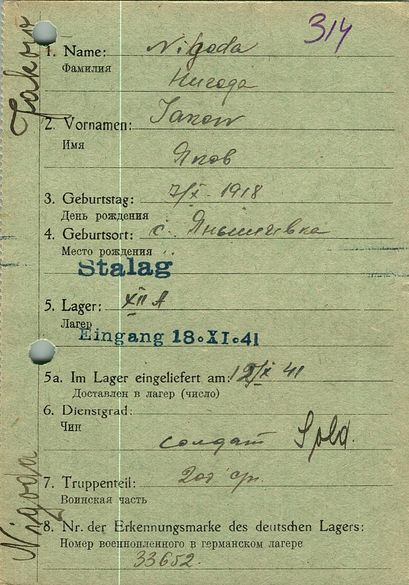 314
Jakow
1. Name: Nigoda
Фамилия Нигода
2. Vornamen: Jakow
Имя Яков
3. Geburtstag: 7/X - 1918
День рождения
4. Geburtsort: с. Янышивка
Место рождения
Stalag
5. Lager: XII A
Лагер
Eingang 18.XI.41
5a. Im Lager eingeliefert am: 41
Доставлен в лагер (число)
6. Dienstgrad:
Чин
солдат Sold.
7. Truppenteil: ср.
Воинская часть
8. Nr. der Erkennungsmarke des deutschen Lagers:
Номер военнопленного в германском лагере
33652.
Nigoda